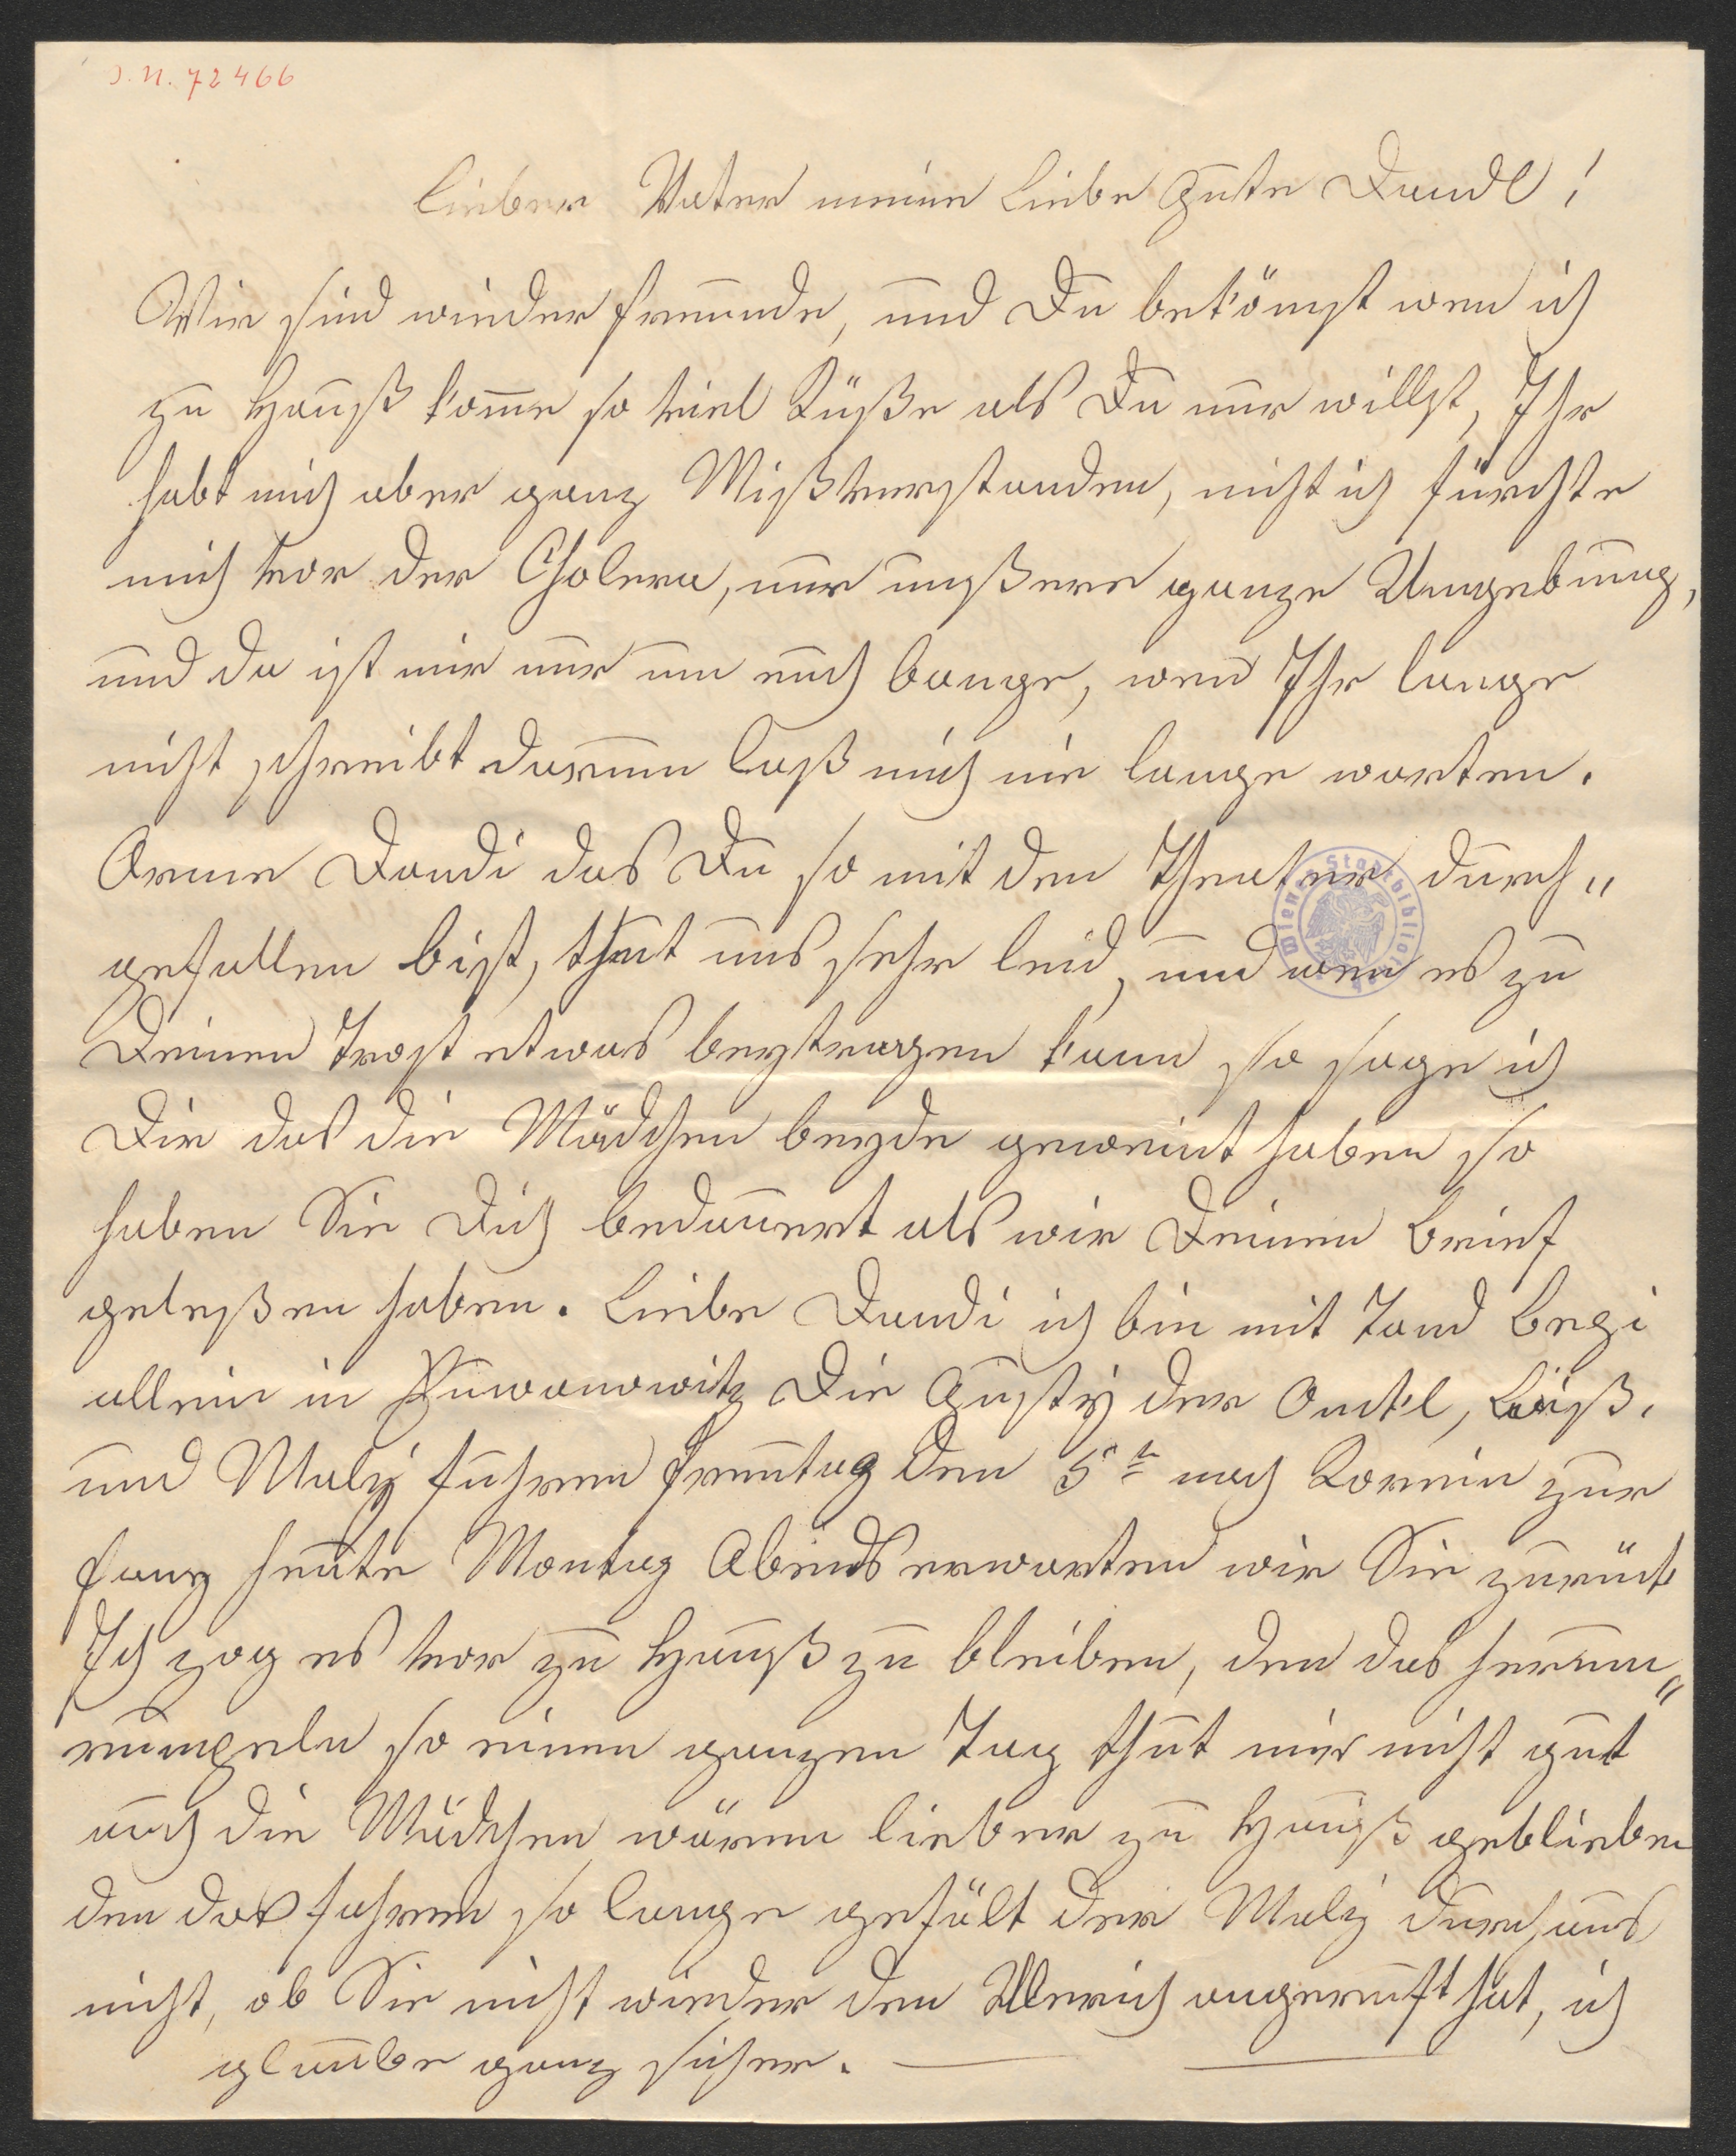 J. N. 72466
Lieber Vater meine Liebe Gute Dandl!
Wir sind wieder Freunde, und Du bekömst wen ich
zu Hauß kome so viel Küße als Du nur willst, Ihr
habt mich aber ganz Mißverstanden, nicht ich fürchte
mich vor der Cholera, nur unßere ganze Umgebung,
und da ist mir nur um euch bange, wen Ihr lange
nicht schreibt darum laß mich nie lange warten.
Arme Dandi das Du so mit den Theater durch„
gefallen bist, thut uns sehr leid, und wen es zu
Deinen Trost etwas beytragen kann so sage ich
Dir das die Mädchen beyde geweint haben so
haben Sie Dich bedauert als wir Deinen Brief
geleßen haben. Liebe Dandi ich bin mit Tand Begi
allein in die Gusty der Onkl, Louiß.
und Maly fuhren Freutag den 5t nach Korein zur
Fany heute Montag Abends erwarten wir Sie zurück
Ich zog es vor zu Hauß zu bleiben, den das herum„
rumpeln so einen ganzen Tag thut mir nicht gut
auch die Mädchen wären lieber zu Hauß geblieben
den das fahren so lange gefält der Maly durchaus
nicht, ob Sie nicht wieder den Ulerich angeruft hat, ich
glaube ganz sicher.
Wiener Stadtbibliothek